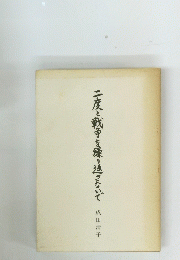 二度と戦争を繰り返さないで